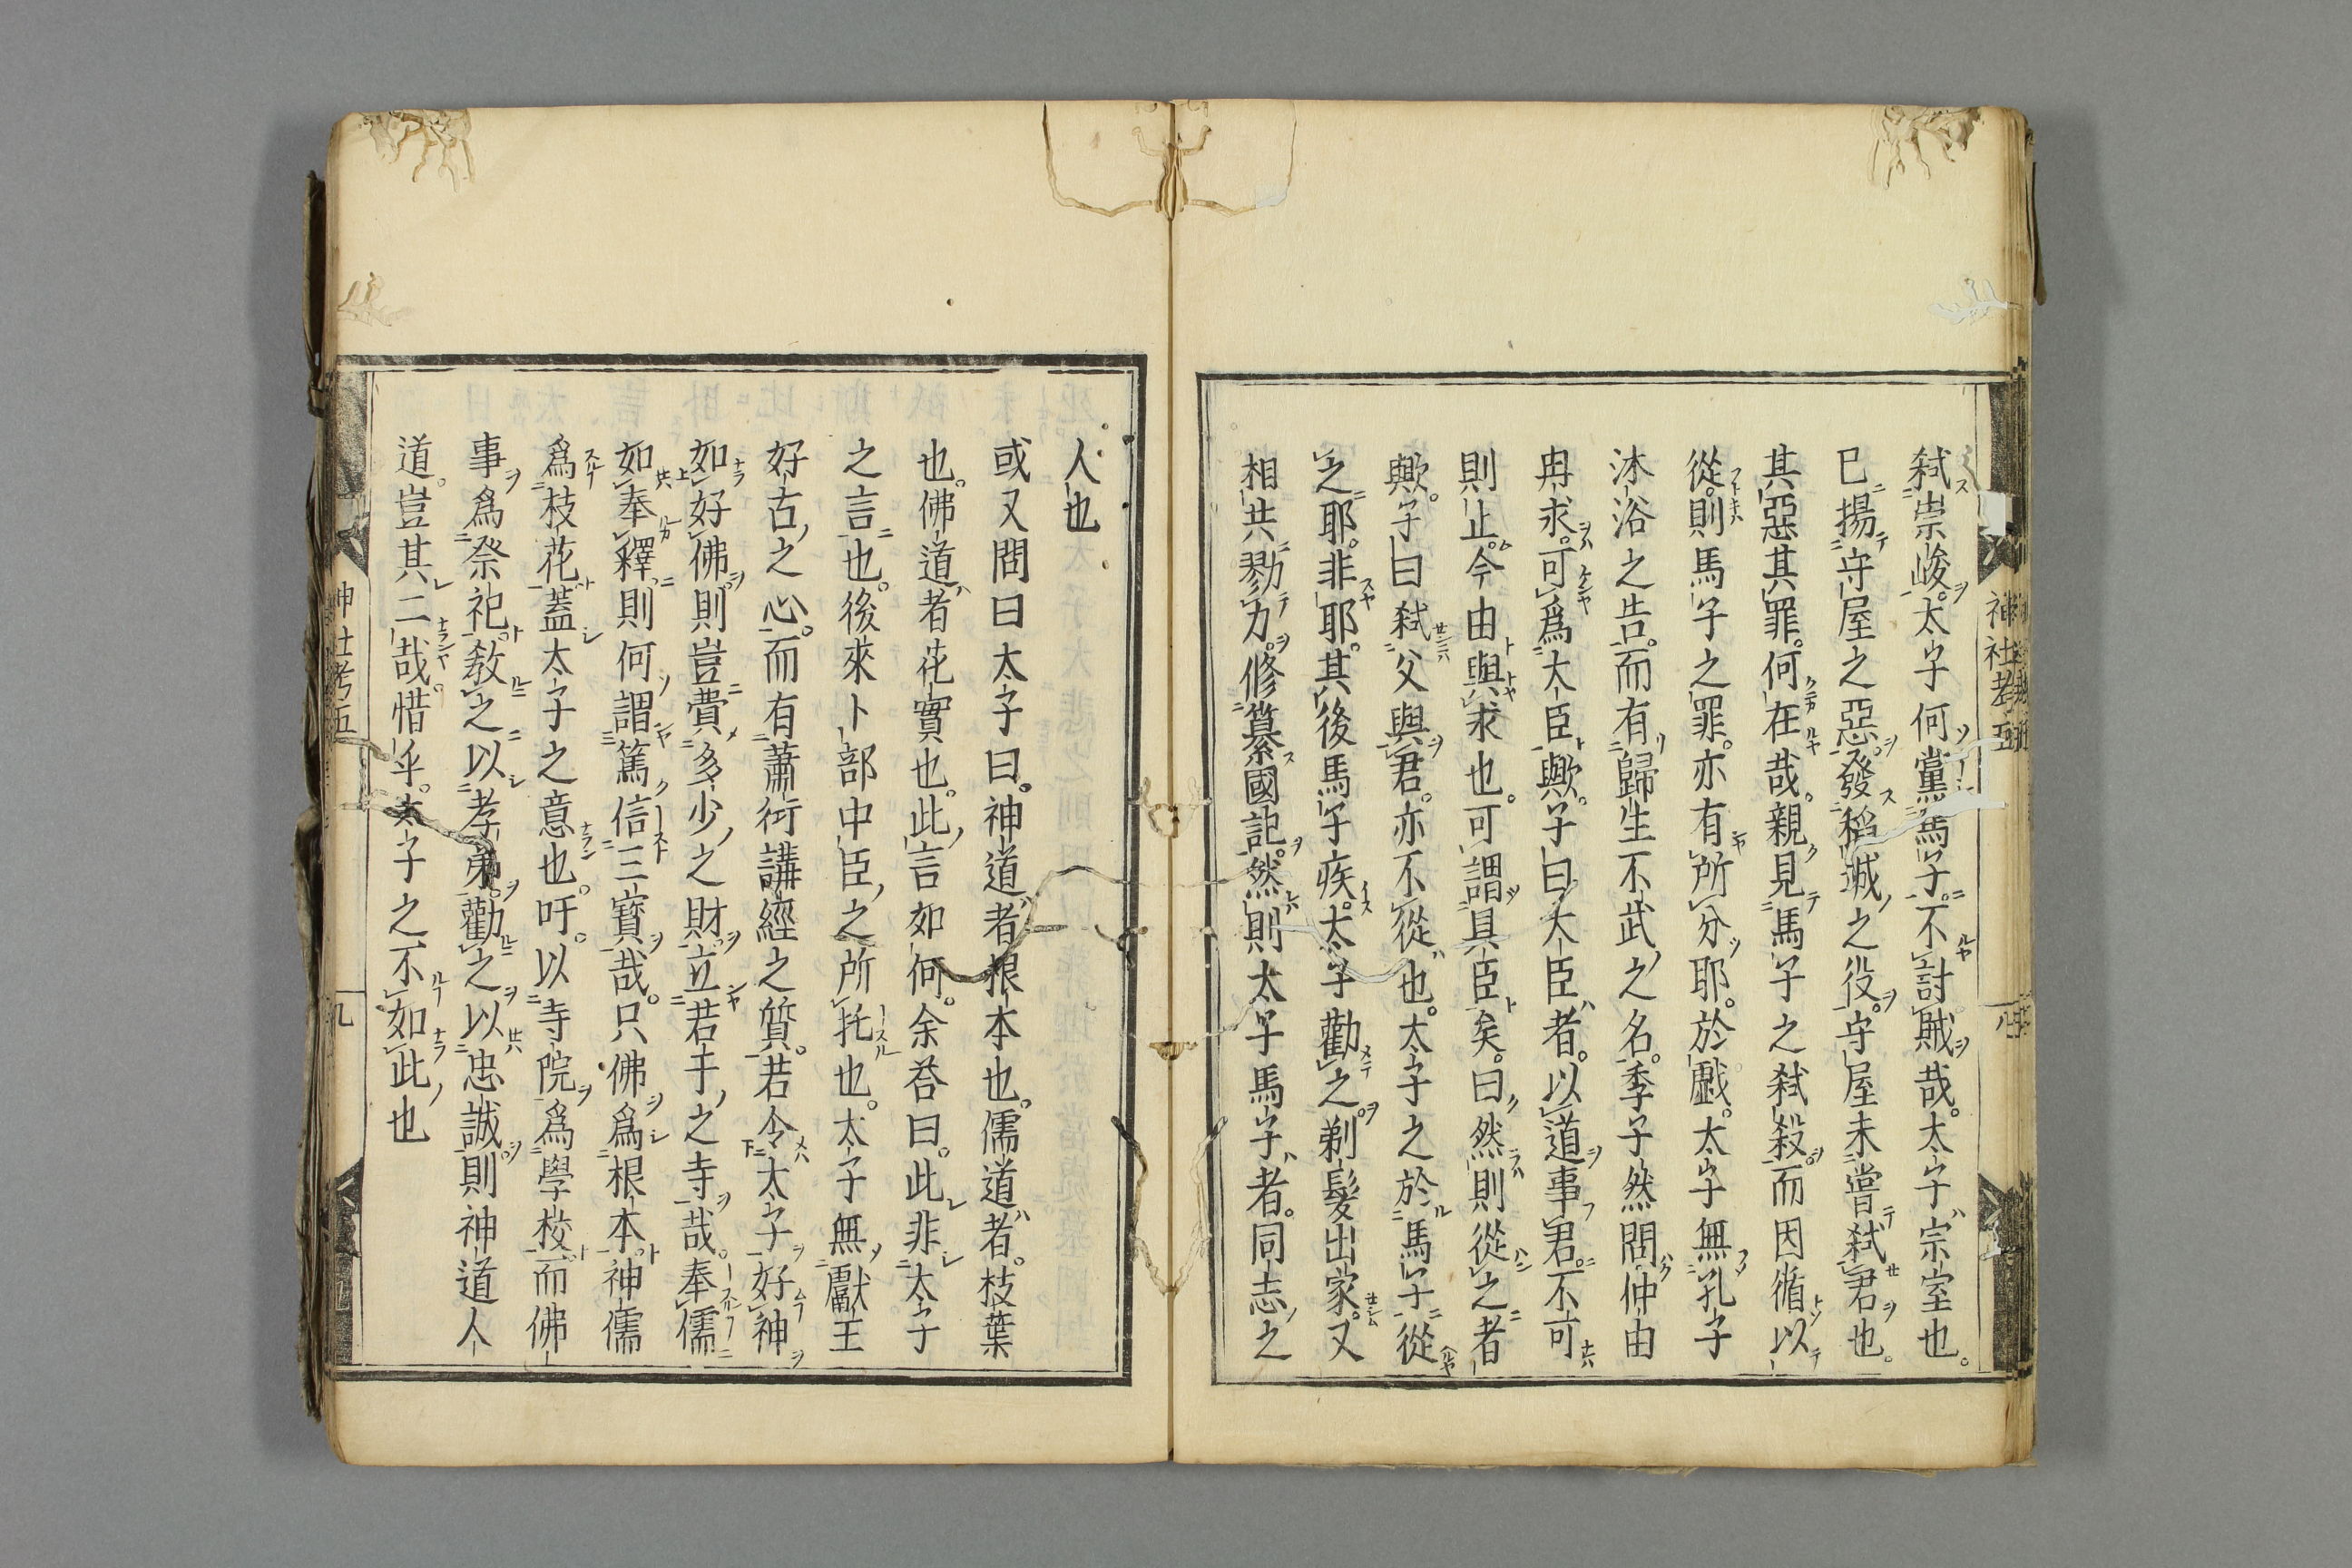 弑崇峻。太子何黨馬子。不討賊哉。太子宗室也。
已揚守屋之惡。發稻城之役。守屋未嘗弑君也。
其惡其罪。何在哉。親見馬子之弑殺。而因循以
從。則馬子之罪。亦有所分耶。於戲。太子無孔子
沐浴之告。而有歸生不武之名。季子然問仲由
冉求。可爲大臣歟。子曰大臣者。以道事君。不可
則止。今由與求也。可謂具臣矣。曰然則從之者
歟。子曰弑父與君。亦不從也。太子之於馬子從
之耶。非耶。其後馬子疾。太子勸之。剃髮出家。又
相共勠力。修纂國記。然則太子馬子者。同志之
神社考五
八
人也
或又問曰太子曰。神道者根本也。儒道者。枝葉
也。佛道者花實也。此言如何。余荅曰。此非太子
之言也。後來卜部中臣之所托也。太子無獻王
好古之心。而有蕭衍講經之質。若令太子好神
如好佛。則豈費多少之財。立若干之寺哉。奉儒
如奉釋。則何謂篤信三寶哉。只佛爲根本。神儒
爲枝花。蓋太子之意也。吁。以寺院爲學校。而佛
事爲祭祀。敎之以孝弟。勸之以忠誠。則神道人
道。豈其二哉。惜乎。太子之不如此也
神社考五
九